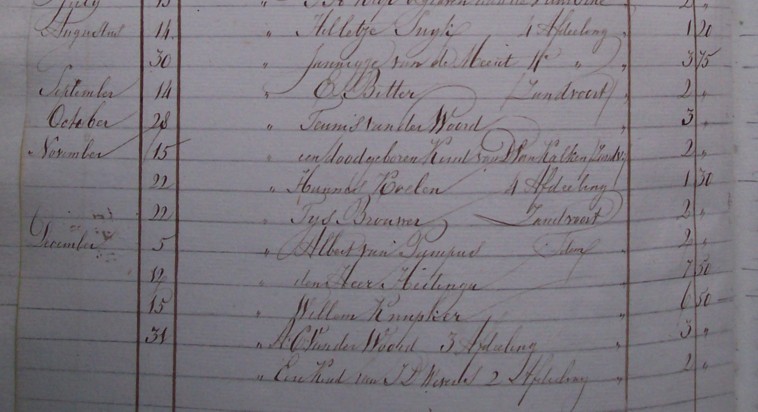 July 15 "
Augustus 14 " Hilletje Snyk 4 Afdeeling 1 20
30 " Jannigje van de Meent 4e " " 3 75
September 14 " E. Bitter Zandvoort " 2 "
October 28 " Teunis van der Woord " 3 "
November 15 " een doodgeboren Kind van D. van Kalken Zandv 2 "
22 " Hannes Koelen 4 Afdeeling 1 30
22 " Tys Brouwer Zandvoort 2 "
December 5 " Albert van Pumpus Idem " 2 "
12 " den Heer Hielinga " 7 50
15 " Willem Knupker " 6 50
31 " A. C. van der Woord 3 Afdeeling 3 "
" Een Kind van J D 2 Afdeeling " 2 "